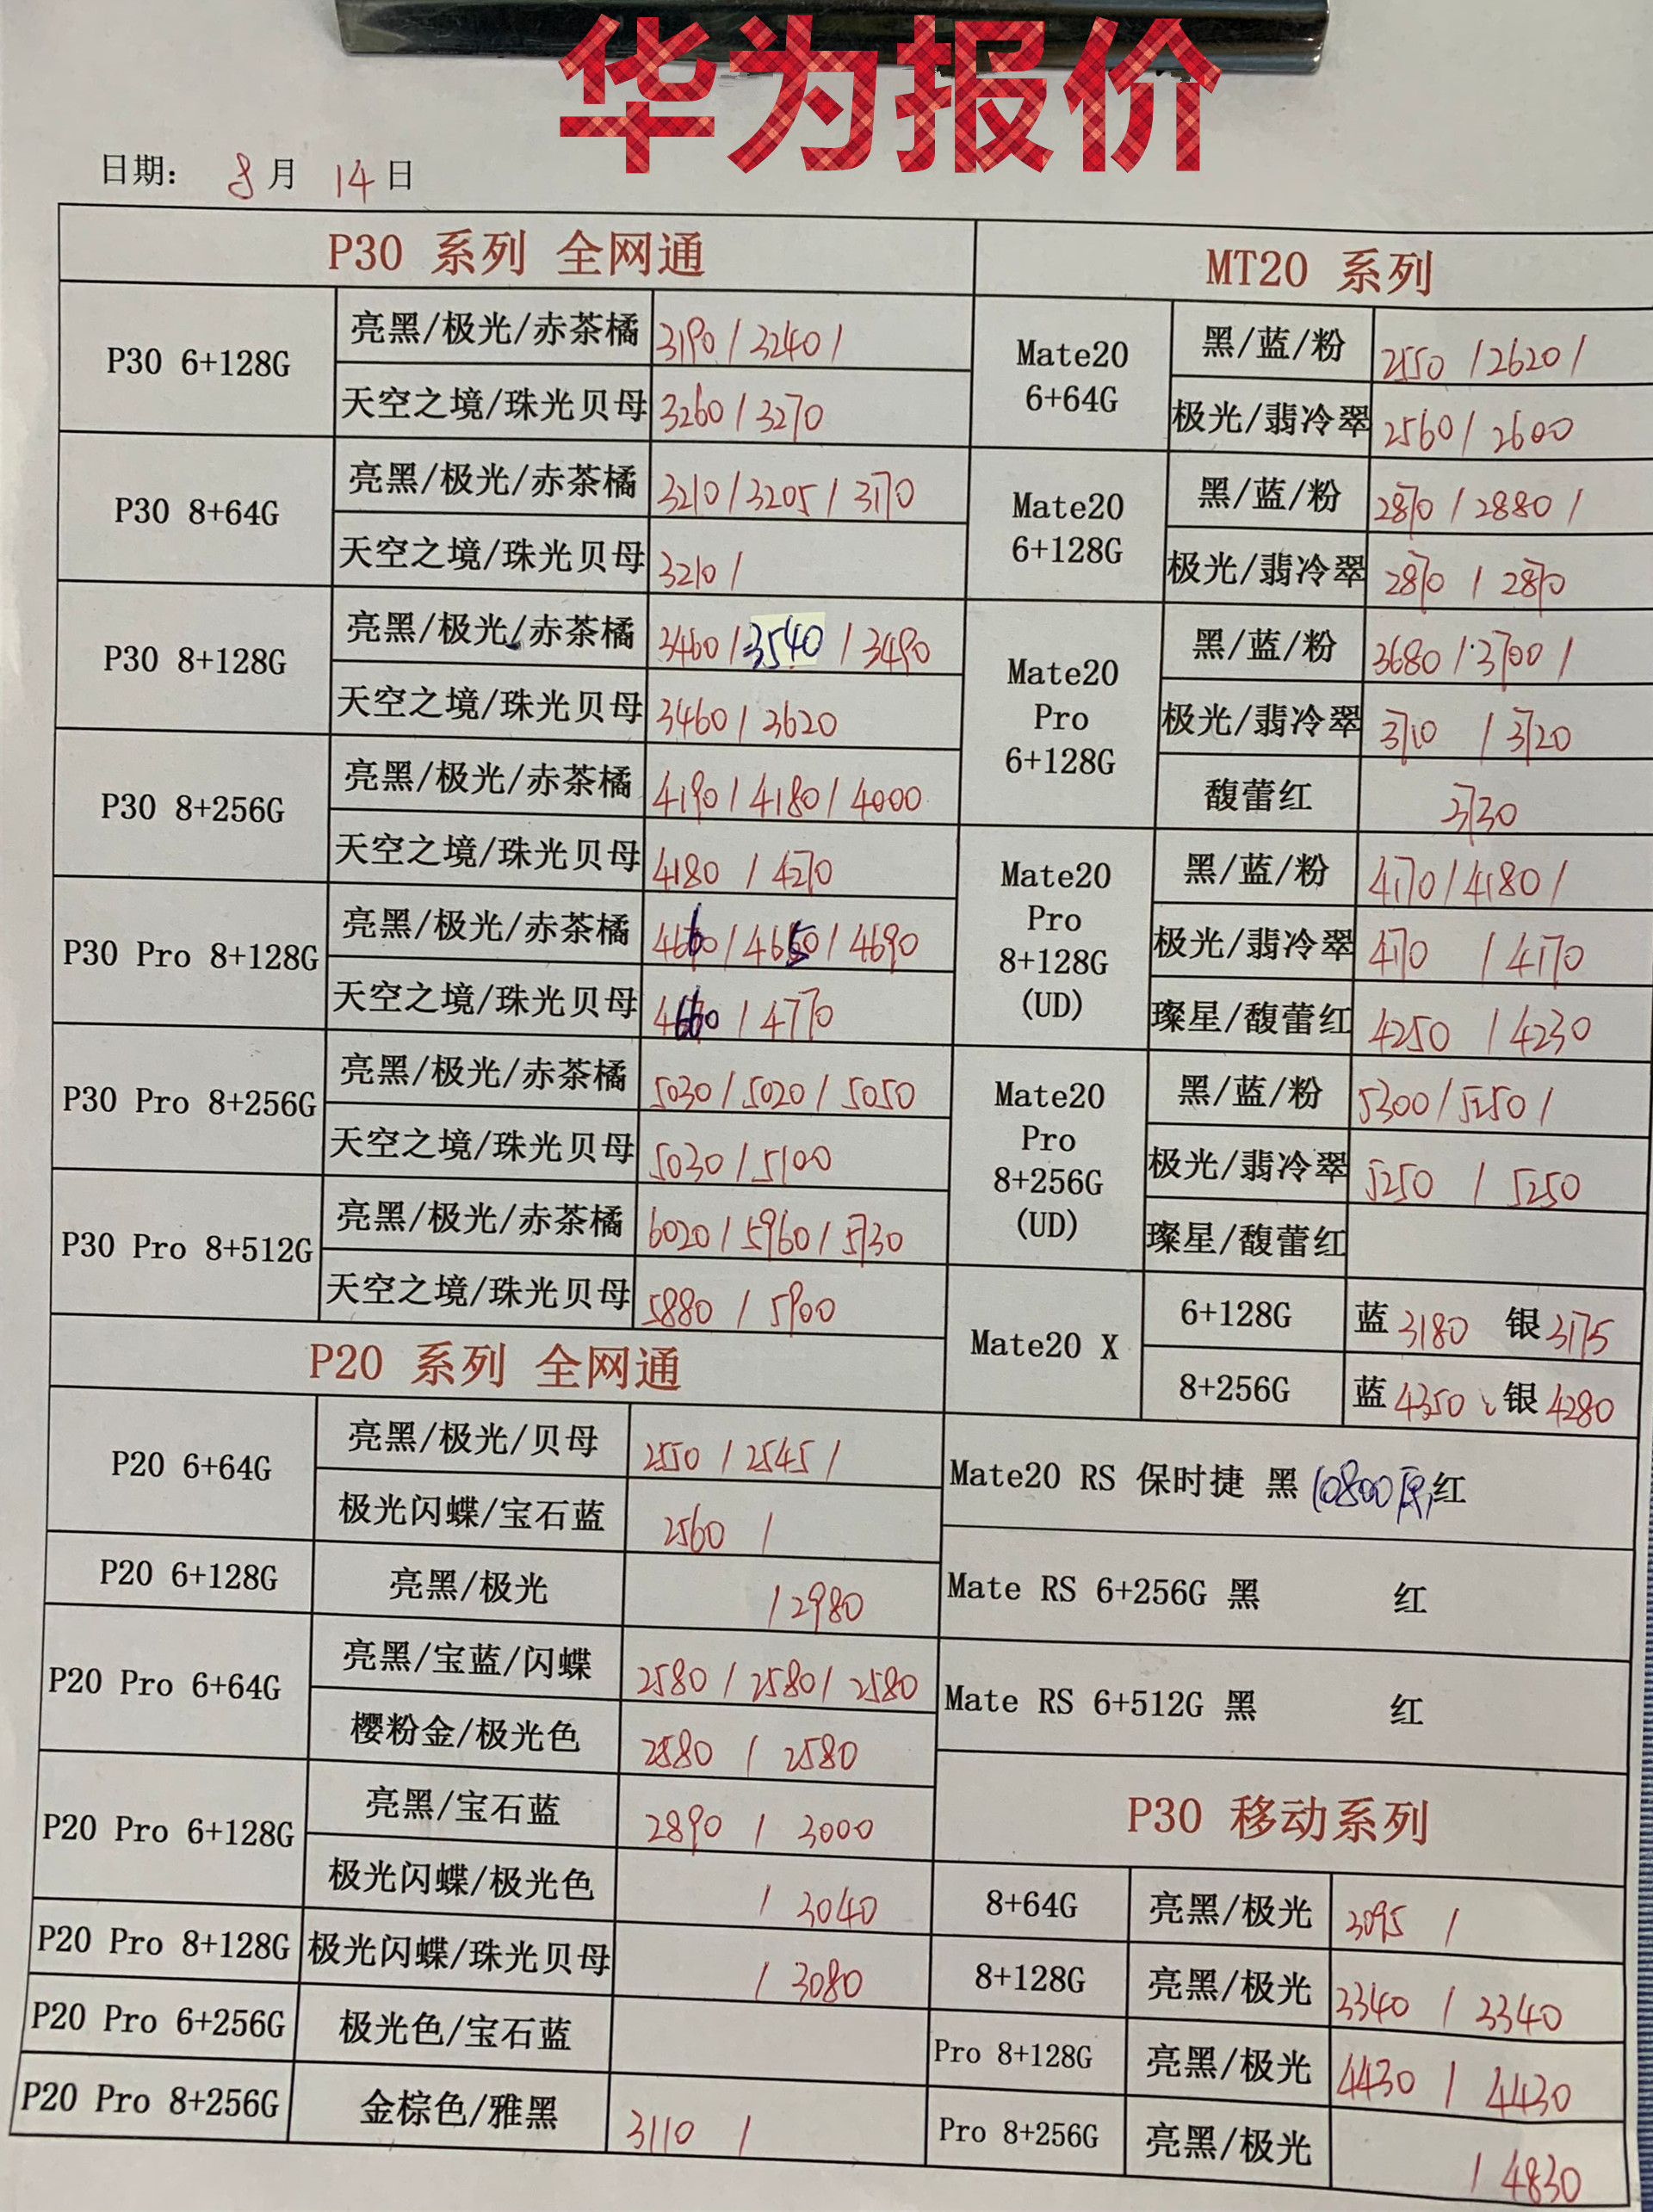 华为报价
日期： 8月 14日
P30 系列 全网通
P30 6+128G 亮黑/极光/赤茶橘 3190 / 3240 /
天空之境/珠光贝母 3260 / 3270
P30 8+64G 亮黑/极光/赤茶橘 3210 / 3205 / 3170
天空之境/珠光贝母 3210 /
P30 8+128G 亮黑/极光/赤茶橘 3460 / 3540 / 3490
天空之境/珠光贝母 3460 / 3620
P30 8+256G 亮黑/极光/赤茶橘 4190 / 4180 / 4000
天空之境/珠光贝母 4180 / 4270
P30 Pro 8+128G 亮黑/极光/赤茶橘 4660 / 4650 / 4690
天空之境/珠光贝母 4660 / 4770
P30 Pro 8+256G 亮黑/极光/赤茶橘 5030 / 5020 / 5050
天空之境/珠光贝母 5030 / 5100
P30 Pro 8+512G 亮黑/极光/赤茶橘 6020 / 5960 / 5730
天空之境/珠光贝母 5880 / 5900
P20 系列 全网通
P20 6+64G 亮黑/极光/贝母 2550 / 2545 /
极光闪蝶/宝石蓝 2560 /
P20 6+128G 亮黑/极光 / 2980
P20 Pro 6+64G 亮黑/宝蓝/闪蝶 2580 / 2580 / 2580
樱粉金/极光色 2580 / 2580
P20 Pro 6+128G 亮黑/宝石蓝 2890 / 3000
极光闪蝶/极光色 / 3040
P20 Pro 8+128G 极光闪蝶/珠光贝母 / 3080
P20 Pro 6+256G 极光色/宝石蓝
P20 Pro 8+256G 金棕色/雅黑 3110 /
MT20 系列
Mate20 6+64G 黑/蓝/粉 2550 / 2620 /
极光/翡冷翠 2560 / 2600
Mate20 6+128G 黑/蓝/粉 2870 / 2880 /
极光/翡冷翠 2870 / 2870
Mate20 Pro 6+128G 黑/蓝/粉 3680 / 3700 /
极光/翡冷翠 3710 / 3720
馥蕾红 3730
Mate20 Pro 8+128G (UD) 黑/蓝/粉 4170 / 4180 /
极光/翡冷翠 4170 / 4170
璨星/馥蕾红 4250 / 4230
Mate20 Pro 8+256G (UD) 黑/蓝/粉 5300 / 5250 /
极光/翡冷翠 5250 / 5250
璨星/馥蕾红
Mate20 X 6+128G 蓝 3180 银 3175
8+256G 蓝 4350 银 4280
Mate20 RS 保时捷 黑 10800 红
Mate RS 6+256G 黑 红
Mate RS 6+512G 黑 红
P30 移动系列
8+64G 亮黑/极光 3095 /
8+128G 亮黑/极光 3340 / 3340
Pro 8+128G 亮黑/极光 4430 / 4430
Pro 8+256G 亮黑/极光 / 4830